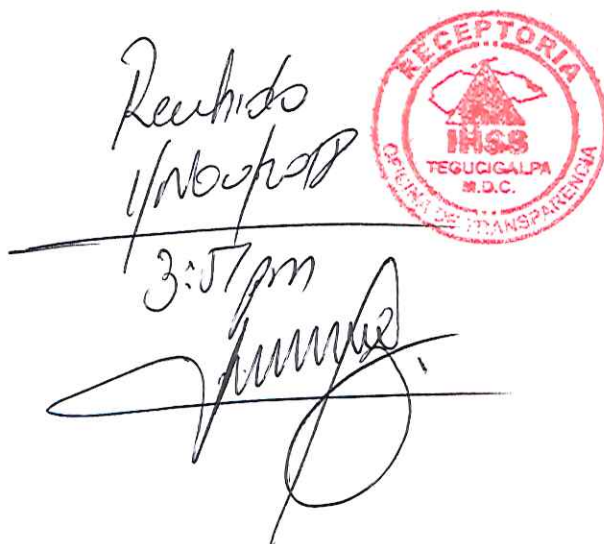 Recibido
1/Nov/2018
3:57 pm
RECEPTORIA
IHSS
TEGUCIGALPA
M.D.C.
OFICINA DE TRANSPARENCIA